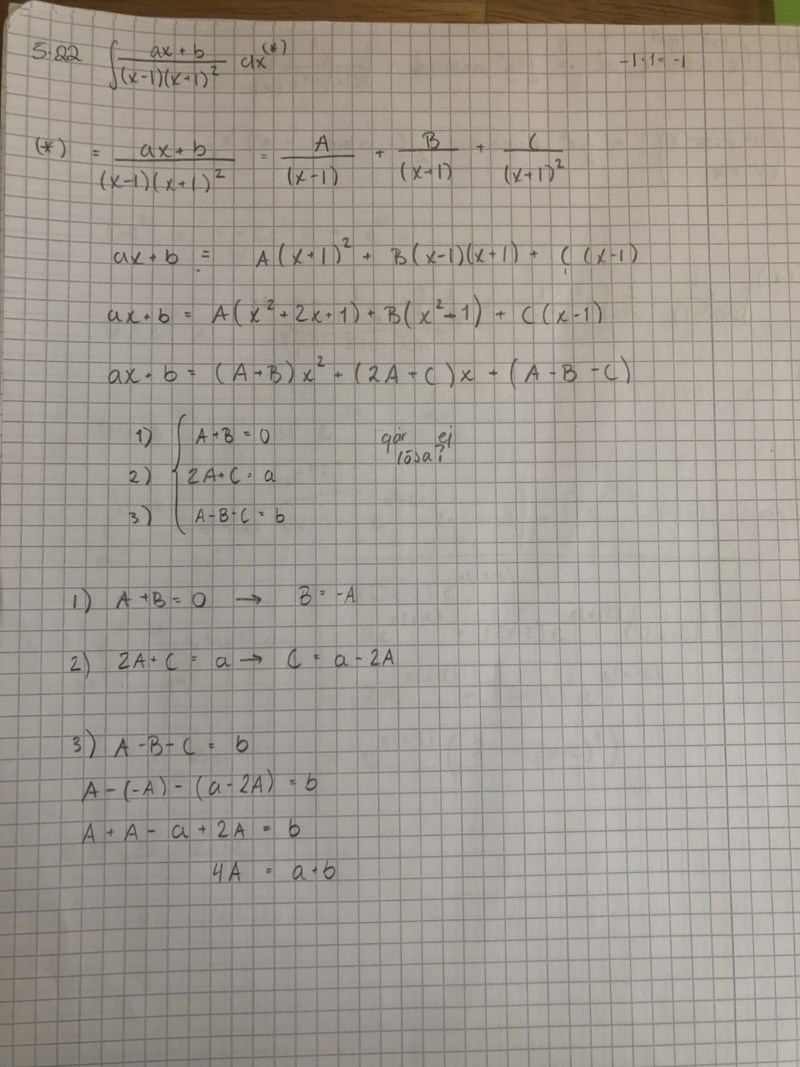 5.22 ∫ (ax + b)/((x-1)(x+1)²) dx (*)
-1·1 = -1
(*) = (ax + b)/((x-1)(x+1)²) = A/(x-1) + B/(x+1) + C/(x+1)²
ax + b = A(x+1)² + B(x-1)(x+1) + C(x-1)
ax + b = A(x² + 2x + 1) + B(x² - 1) + C(x-1)
ax + b = (A+B)x² + (2A + C)x + (A - B - C)
1) { A + B = 0
går ej
lösa?
2) 2A + C = a
3) A - B - C = b
1) A + B = 0 → B = -A
2) 2A + C = a → C = a - 2A
3) A - B - C = b
A - (-A) - (a - 2A) = b
A + A - a + 2A = b
4A = a + b